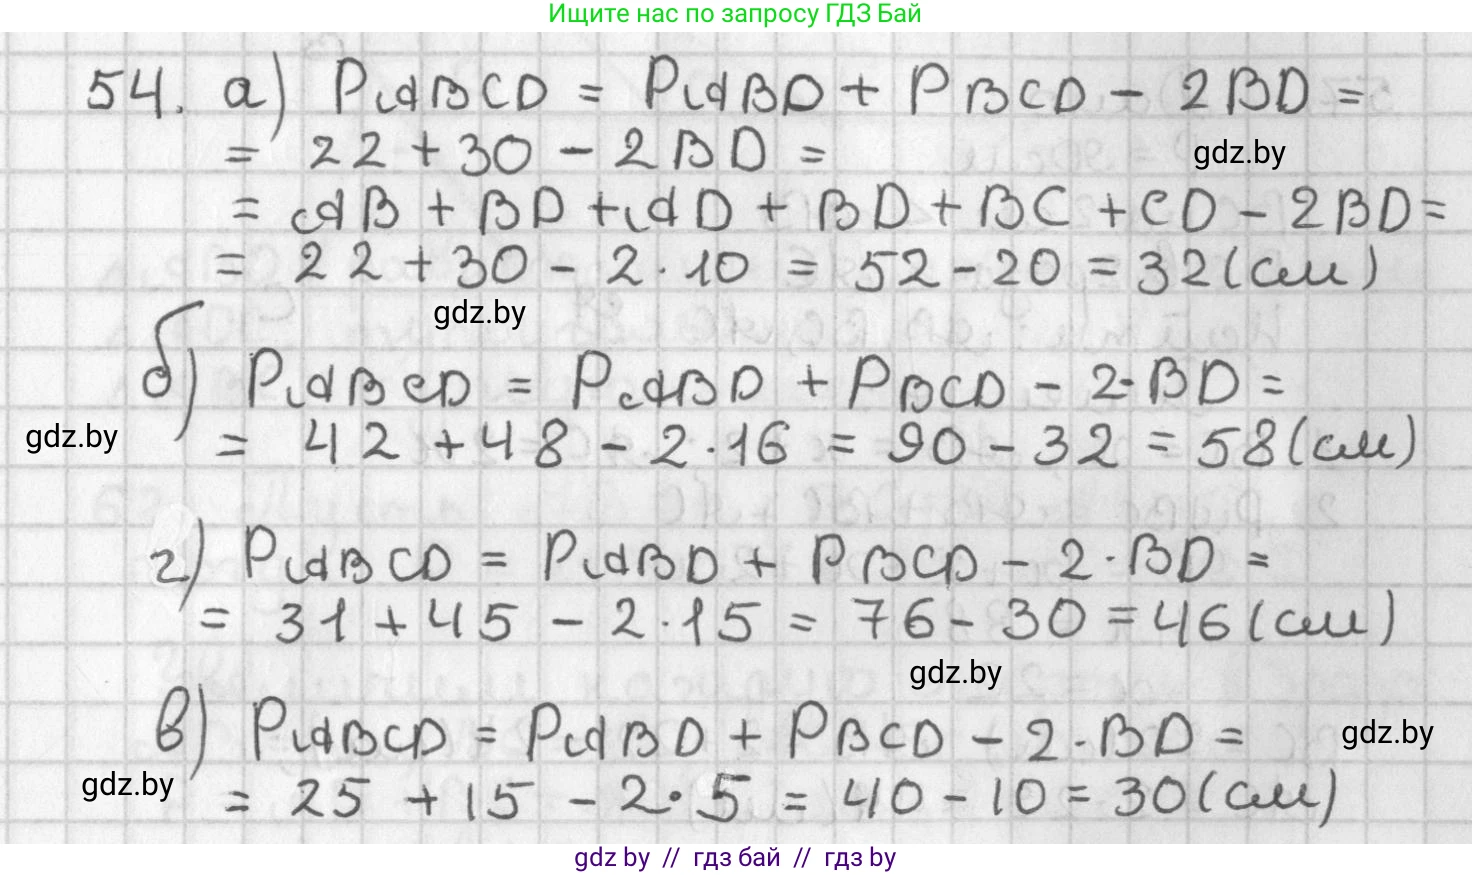 Ищите нас по запросу ГДЗ Бай
54. а) P ABCD = P ABD + P BCD - 2BD =
= 22 + 30 - 2BD =
gdz.by
= AB + BD + AD + BD + BC + CD - 2BD =
= 22 + 30 - 2 · 10 = 52 - 20 = 32 (см)
gdz.by
б) P ABCD = P ABD + P BCD - 2 · BD =
gdz.by
= 42 + 48 - 2 · 16 = 90 - 32 = 58 (см)
г) P ABCD = P ABD + P BCD - 2 · BD =
= 31 + 45 - 2 · 15 = 76 - 30 = 46 (см)
gdz.by
в) P ABCD = P ABD + P BCD - 2 · BD =
gdz.by
gdz.by
= 25 + 15 - 2 · 5 = 40 - 10 = 30 (см)
gdz by // гдз бай // гдз by